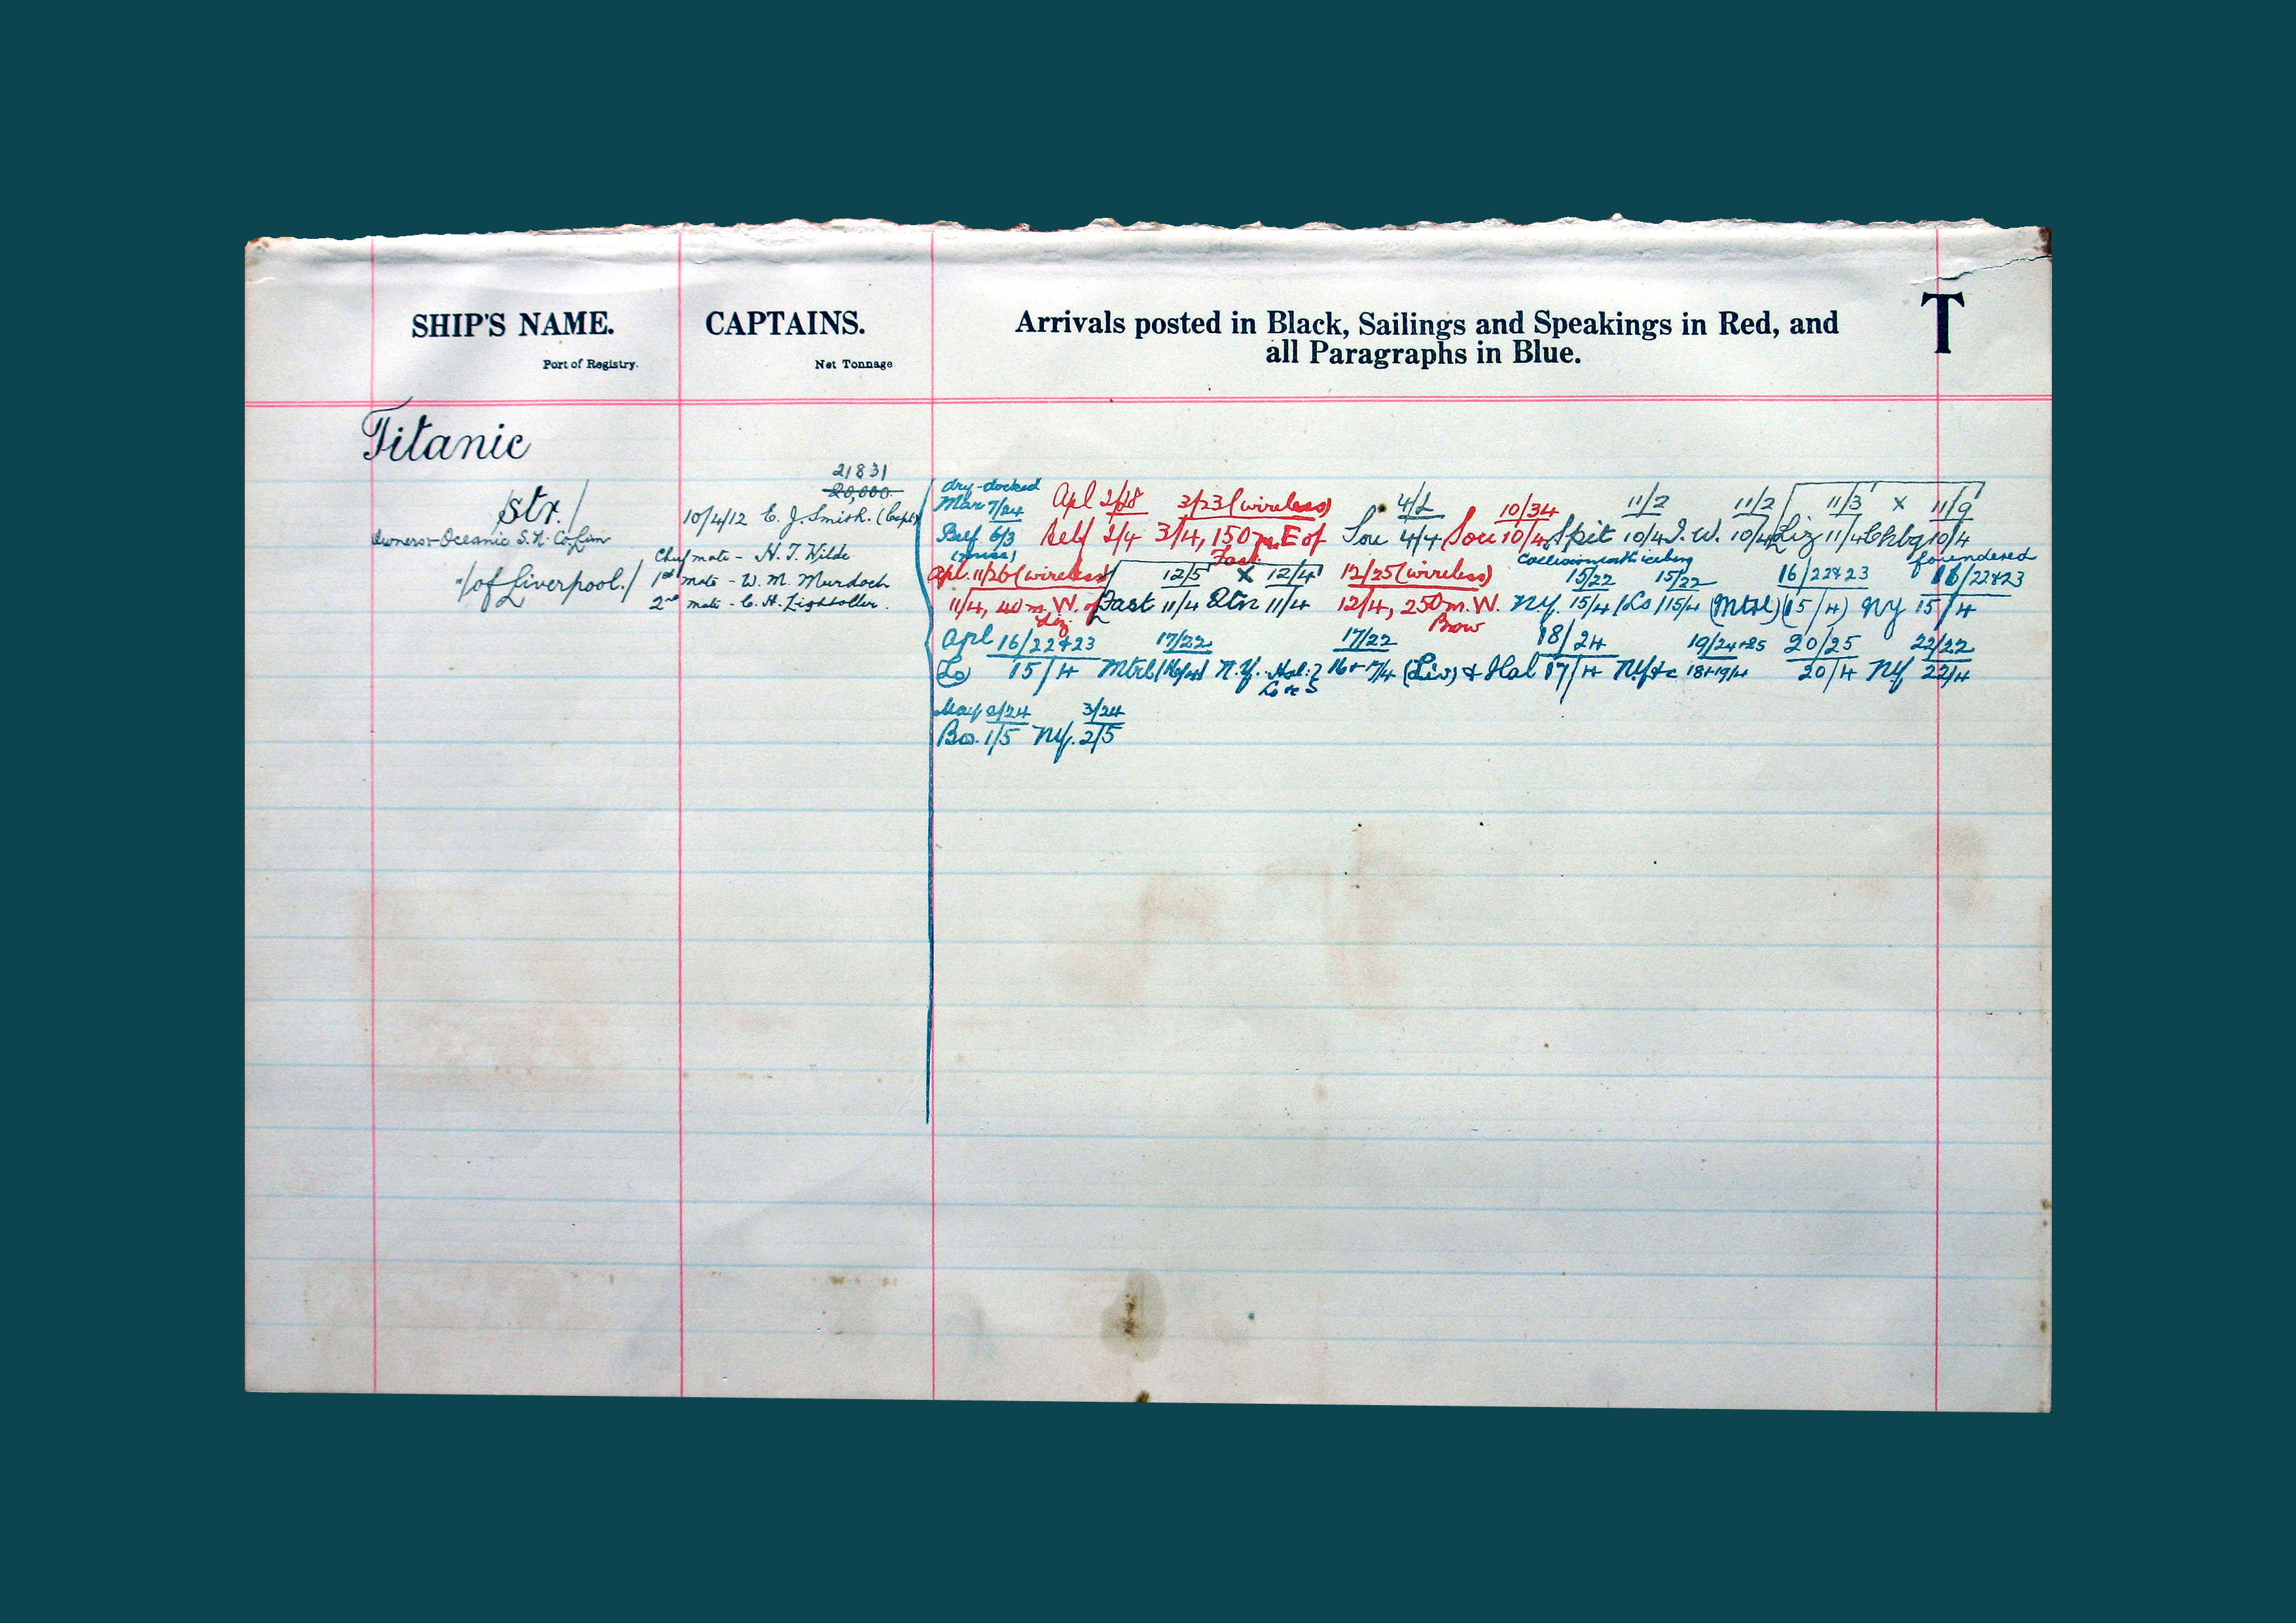 SHIP'S NAME.
Port of Registry.
CAPTAINS.
Net Tonnage
Arrivals posted in Black, Sailings and Speakings in Red, and
all Paragraphs in Blue.
T
Titanic
/str./
Owners - Oceanic S. N. Co. Lim
/of Liverpool./
21831
20,000
10/4/12 E. J. Smith. (Capt)
Chief mate - H. T. Wilde
1st mate - W. M. Murdoch
2nd mate - C. H. Lightoller.
dry-docked
Mar 7/24 Apl 2/28 3/23 (wireless) 4/2 10/34 11/2 11/2 11/3 x 11/9
Belf. 6/3 Self 2/4 3/4, 150 m. E of Sou 4/4 Sou 10/4 Spit 10/4 I. W. 10/4 Liz 11/4 Chbg 10/4
Fast. Collision with iceberg foundered
Apl. 11/26 (wireless) 12/5 x 12/4 12/25 (wireless) 15/22 15/22 16/22+23 16/22+23
11/4, 40 m. W. of Fast 11/4 Qtn 11/4 12/4, 250 m. W. NY. 15/4 (Lo) 15/4 (Mtrl) (15/4) NY 15/4
Liz Brow
Apl 16/22+23 17/22 17/22 18/24 19/24+25 20/25 22/22
Lo 15/4 Mtrl (16/4) N.Y. Hal. 16+17/4 (Liv) + Hal 17/4 NY+c 18+19/4 20/4 NY 22/4
May 2/24 3/24
Bo. 1/5 NY. 2/5